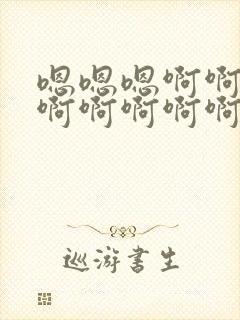 嗯嗯嗯啊啊
啊啊啊啊啊
巡游书生